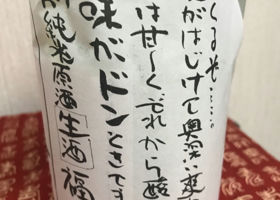 くるぞ……。
がはじけて奥深い
は甘〜くそれから酸
味がドンときて
純米原酒 生酒 福